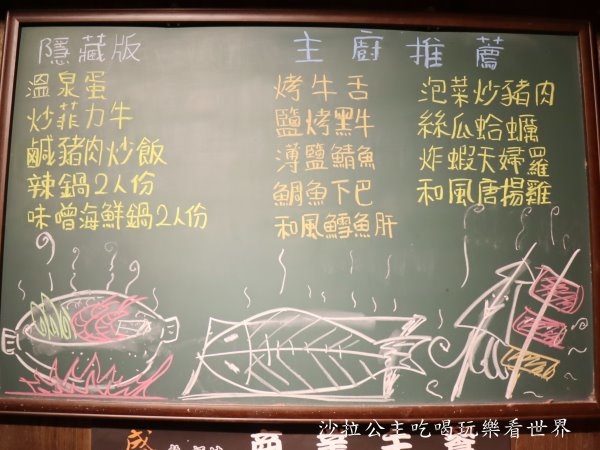 隱藏版
溫泉蛋
炒菲力牛
鹹豬肉炒飯
辣鍋2人份
味噌海鮮鍋2人份
主廚推薦
烤牛舌
鹽烤黑牛
薄鹽鯖魚
鯛魚下巴
和風鱈魚肝
泡菜炒豬肉
絲瓜蛤蠣
炸蝦天婦羅
和風唐揚雞
沙拉公主吃喝玩樂看世界